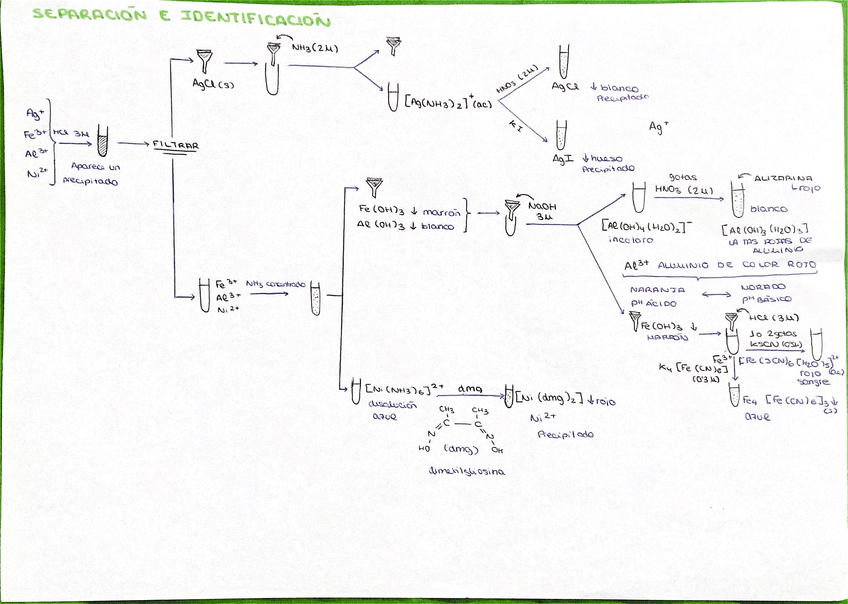 SEPARACIÓN E IDENTIFICACIÓN
Ag+
Fe3+
Al3+
Ni2+
HCl 3M
Aparece un
precipitado
FILTRAR
AgCl (s)
NH3 (2M)
[Ag(NH3)2]+ (ac)
HNO3 (2M)
AgCl ↓ blanco
Precipitado
KI
AgI ↓ hueso
Precipitado
Ag+
Fe3+
Al3+
Ni2+
NH3 concentrado
Fe(OH)3 ↓ marrón
Al(OH)3 ↓ blanco
NaOH
3M
[Al(OH)4(H2O)2]-
incoloro
gotas
HNO3 (2M)
ALIZARINA
rojo
blanco
[Al(OH)3(H2O)3]
ALUMINIO
Al3+ ALUMINIO DE COLOR ROJO
NARANJA
pH ÁCIDO
MORADO
pH BÁSICO
Fe(OH)3 ↓
MARRÓN
HCl (3M)
1o 2gotas
KSCN
Fe3+
rojo
sangre
K4 [Fe(CN)6]
Fe4 [Fe(CN)6]3 ↓
(s)
azul
[Ni(NH3)6]2+
disolución
azul
dmg
[Ni(dmg)2] ↓ rojo
Ni2+
Precipitado
CH3 CH3
C C
N N
HO (dmg) OH